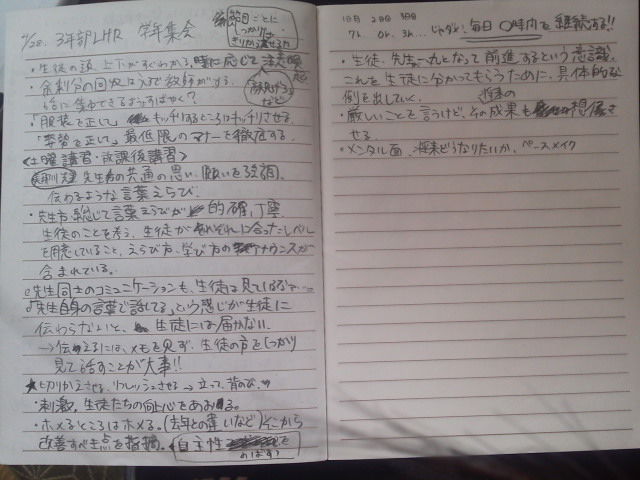 4/28. 3年部LHR 学年集会
節目ごとに
しっかりは
きりから渡せるか
・生徒の話 上下がよくわかる。時に応じて注意喚起
・余剰分の回収は入口で教師がする。
始に集中できるようすばやく?
・服装を正して、キッチリするところはキッチリさせる。
・姿勢を正して。最低限のマナーを徹底する。
<土曜講習・放課後講習>
先生方の共通の思い、願いを強調。
伝わるような言葉えらび。
・先生方、総じて言葉えらびが的確、丁寧
生徒のことを考え、生徒がそれぞれに合ったレベル
を用意していること、えらび方、学び方のアナウンスが
含まれている。
・先生同士のコミュニケーションも、生徒は見ているなぁ…
・「先生自身の言葉で話してる」という感じが生徒に
伝わらないと、生徒には届かない。
→伝えるには、メモを見ず、生徒の方をしっかり
見て話すことが大事!!
★切りかえさせる、リフレッシュさせる → 立って、背のび。
・刺激。生徒たちの向上心をあおる。
・ホメるところはホメる。(去年との違いなど)そこから
改善すべき点を指摘。
自主性を
のばす!
1日目 2日目 3日目
7h. 0h. 3h. … じゃダメ。毎日〇時間を継続する!!
・生徒、先生一丸となって前進するという意識。
これを生徒に分かってもらうために、具体的な
例を出していく。
・厳しいことを言うけど、その将来の成果も想像さ
せる。
・メンタル面、将来どうなりたいか、ペースメイク